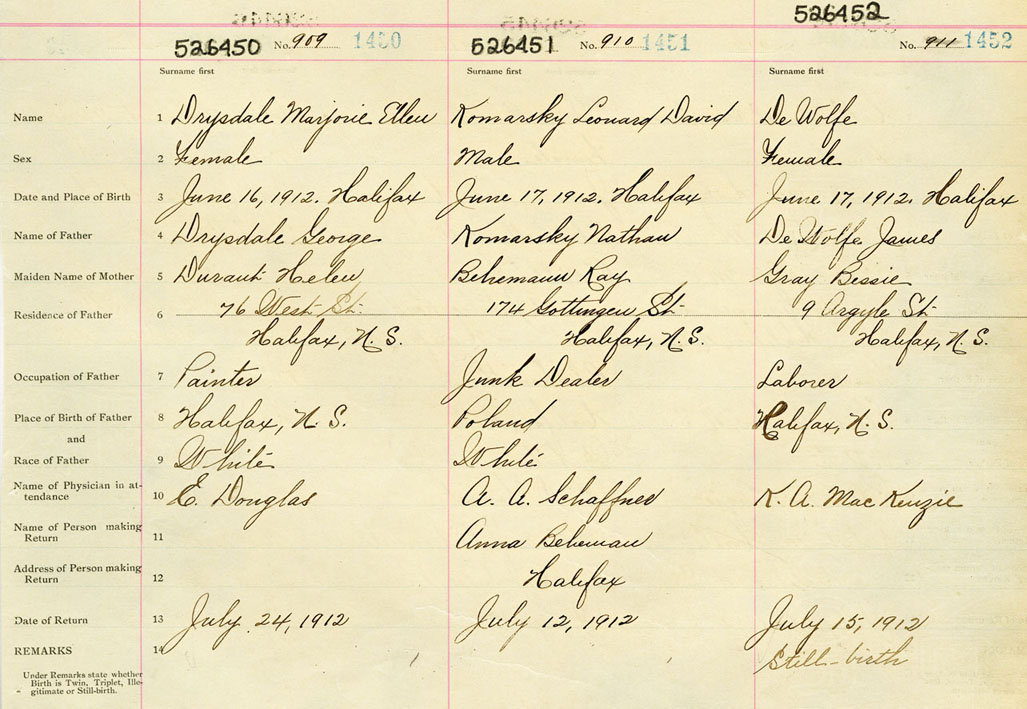 526450 No. 909 1450 526451 No. 910 1451 526452 No. 911 1452
Surname first Surname first Surname first
Name 1 Drysdale Marjorie Ellen Komarsky Leonard David De Wolfe
Sex 2 Female Male Female
Date and Place of Birth 3 June 16, 1912. Halifax June 17, 1912. Halifax June 17, 1912. Halifax
Name of Father 4 Drysdale George Komarsky Nathan De Wolfe James
Maiden Name of Mother 5 Durant Helen Behemann Ray Gray Bessie
Residence of Father 6 76 West St. 174 Gottingen St 9 Argyle St
Halifax, N. S. Halifax, N. S. Halifax, N. S.
Occupation of Father 7 Painter Junk Dealer Laborer
Place of Birth of Father 8 Halifax, N. S. Poland Halifax, N. S.
and
Race of Father 9 White White
Name of Physician in at-
tendance 10 E. Douglas A. A. Schaffner K. A. Mac Kenzie
Name of Person making
Return 11 Anna Beheman
Address of Person making
Return 12 Halifax
Date of Return 13 July 24, 1912 July 12, 1912 July 15, 1912
REMARKS 14 Still-birth
Under Remarks state whether
Birth is Twin, Triplet, Ille-
gitimate or Still-birth.